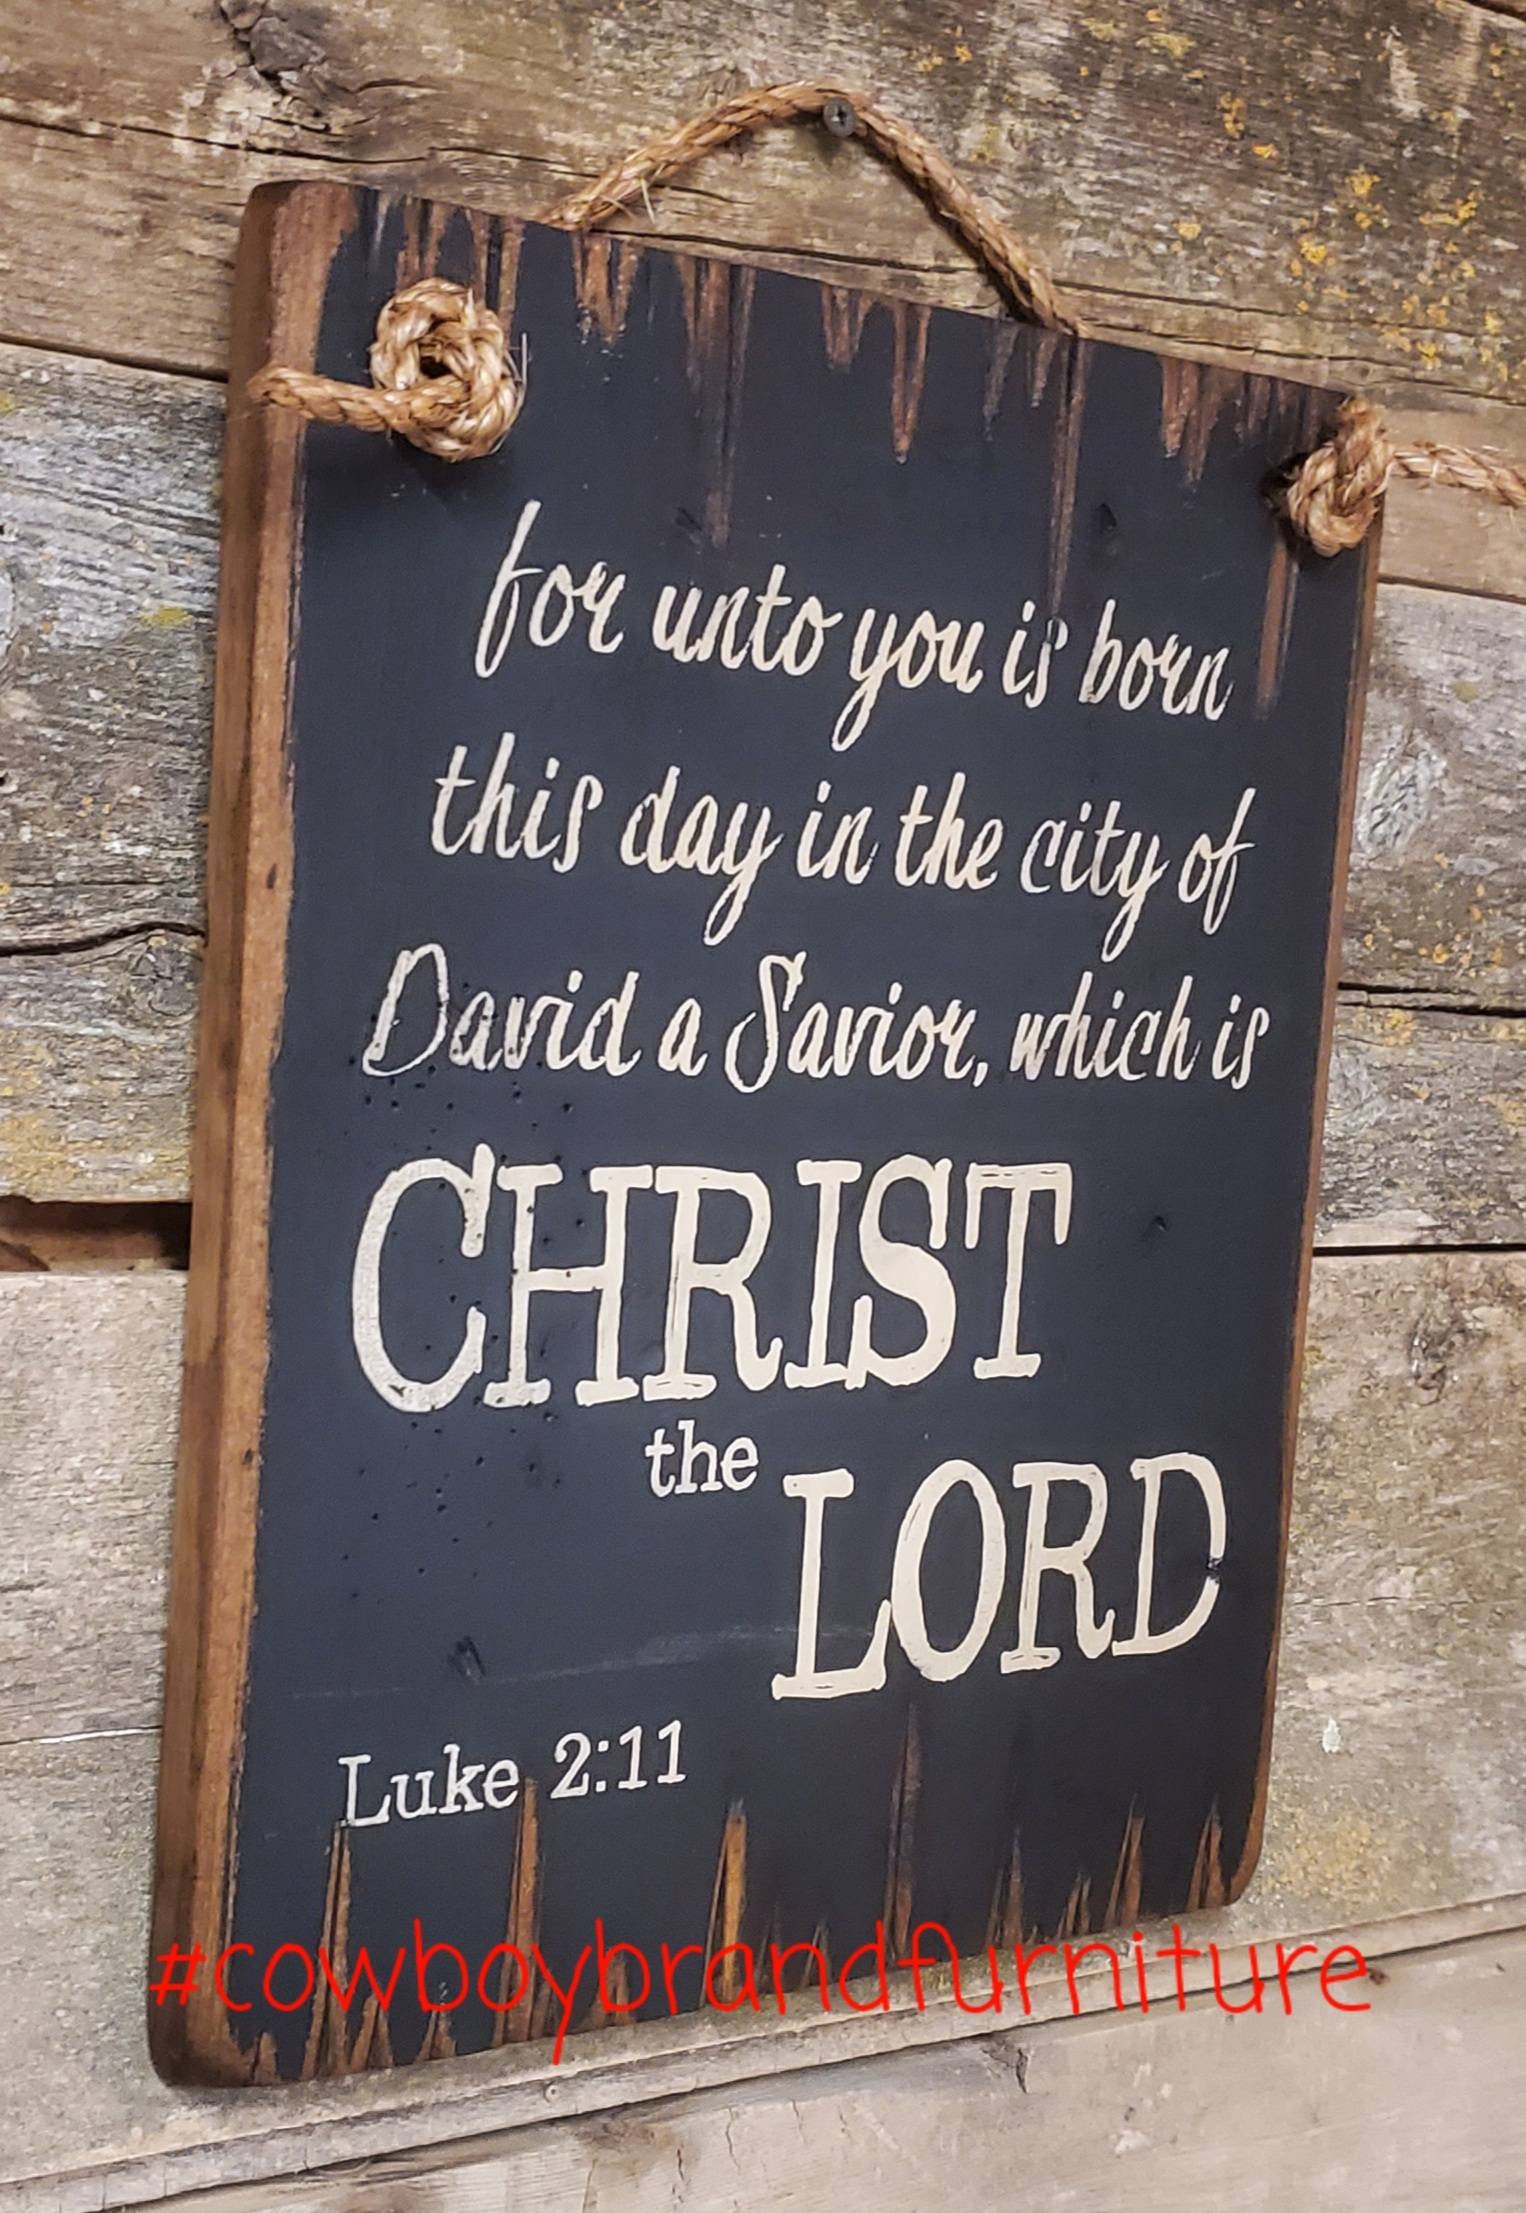 for unto you is born
this day in the city of
David a Savior, which is
CHRIST
the
LORD
Luke 2:11
#cowboybrandfurniture